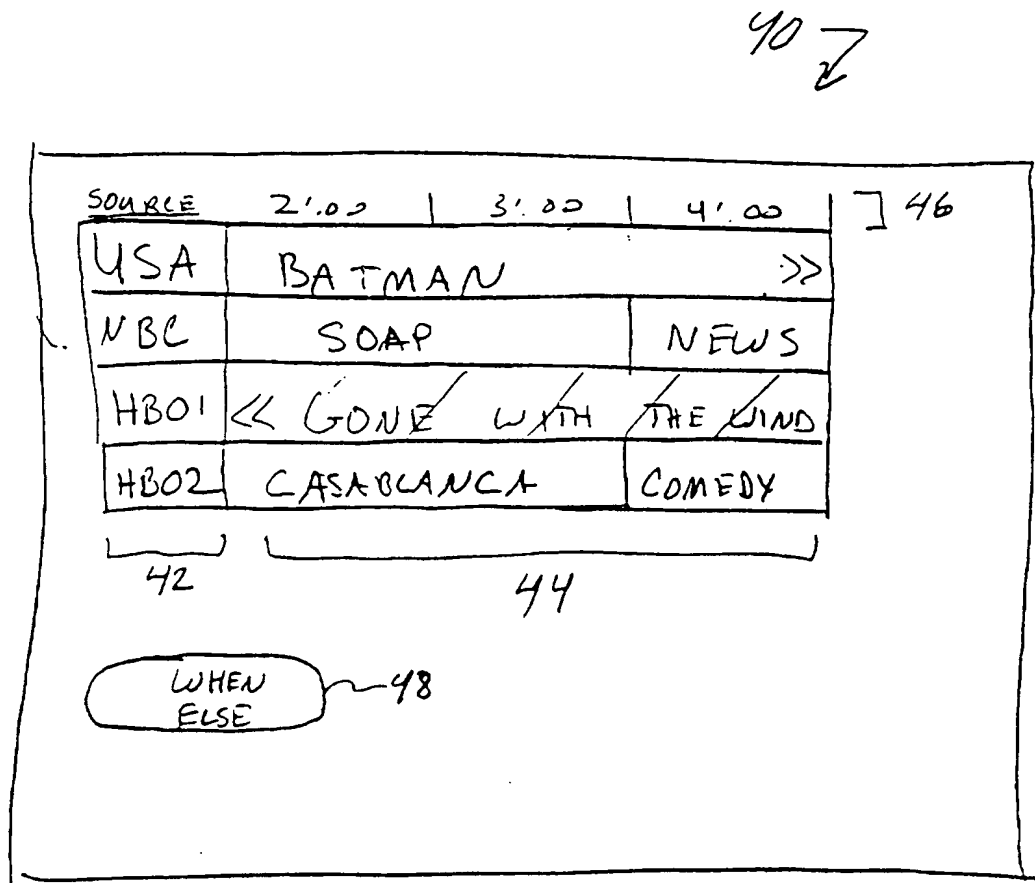 40
SOURCE 2:00 3:00 4:00 46
USA BATMAN >>
NBC SOAP NEWS
HBO1 << GONE WITH THE WIND
HBO2 CASABLANCA COMEDY
42 44
WHEN 48
ELSE